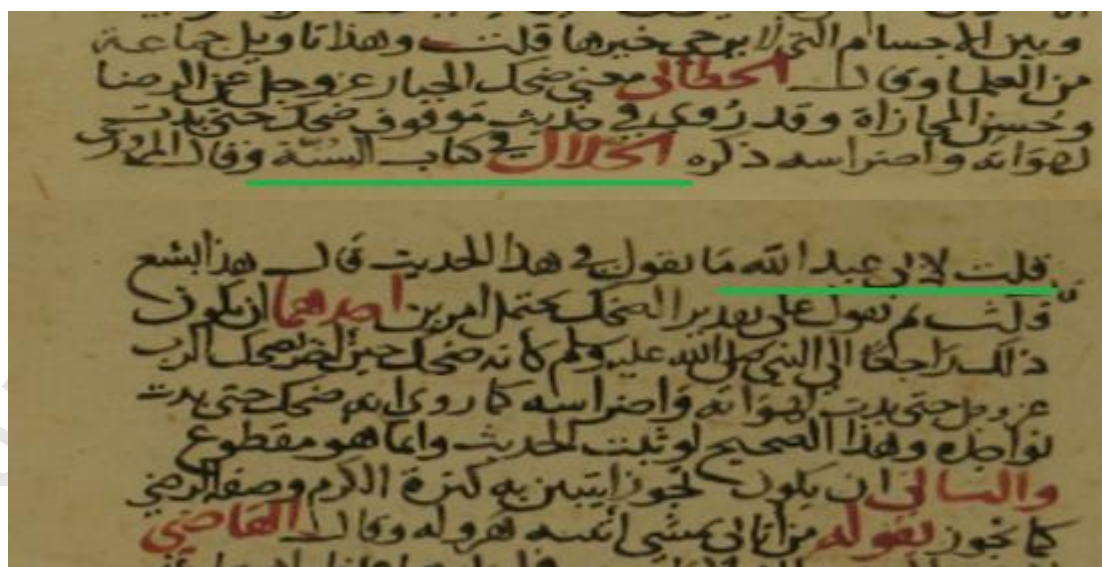 وبين الاجسام التي لا يرجى خيرها قلت وهذا تاويل جماعة
من العلما وقال الخطابي معنى ضحك الجبار عز وجل عن الرضا
وحسن المجازاة وقد رُوي في حديث موقوف ضحك حتى بدت
لهواته واضراسه ذكره الخلال في كتاب السنة وقال المروذي
قلت لابي عبد الله ما تقول في هذا الحديث قال هذا بشع
قلت ثم نقول على تقدير الضحك يحتمل امرين احدهما ان يكون
ذلك راجعًا الى النبي صلى الله عليه وسلم كانه ضحك حين اخبر بضحك الرب
عز وجل حتى بدت لهواته واضراسه كما روي انه ضحك حتى بدت
نواجذه وهذا الصحيح لو ثبت الحديث وانما هو مقطوع
والثاني ان يكون تجوزا يتبين به كثرة الكرم وصفة الرضي
كما تجوز بقوله من اتاني يمشي اتيته هرولة وقال القاضي